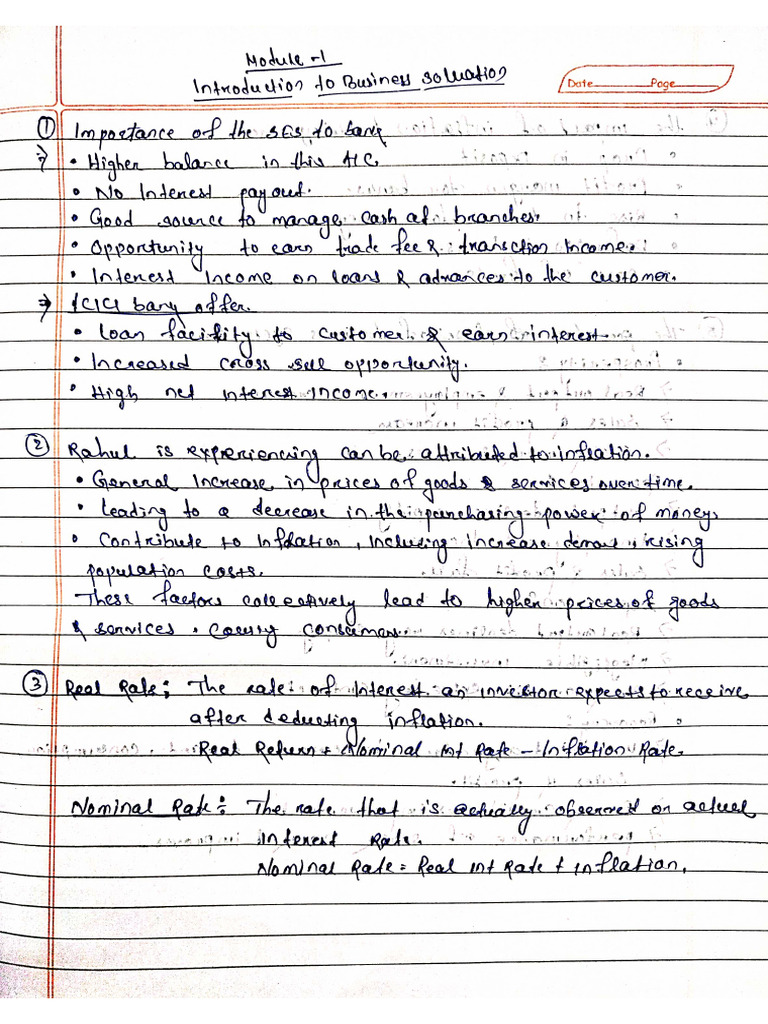 Module -1
Introduction to Business soluation
Date Page
① Importance of the SEs to bank
⇒ • Higher balance in this A/C.
• No Interest payout.
• Good source to manage cash at branches.
• Opportunity to earn trade fee & transction Income.
• Interest Income on loans & advances to the customer.
⇒ ICICI bank offer.
• Loan facility to customer & earn interest.
• Increased cross sell opportunity.
• High net interest Income.
② Rahul is experiencing can be attributed to Inflation.
• General Increase in prices of goods & services over time.
• Leading to a decrease in the purchasing power of money.
• Contribute to Inflation, Including increase demand, rising
population costs.
These factors collectively lead to higher prices of goods
& services.
③ Real Rate: The rate of Interest an investor expects to receive
after deducting inflation.
Real Return = Nominal Int Rate - Inflation Rate.
Nominal Rate: The rate that is actually observed or actual
interest Rate.
Nominal Rate = Real Int Rate + inflation.